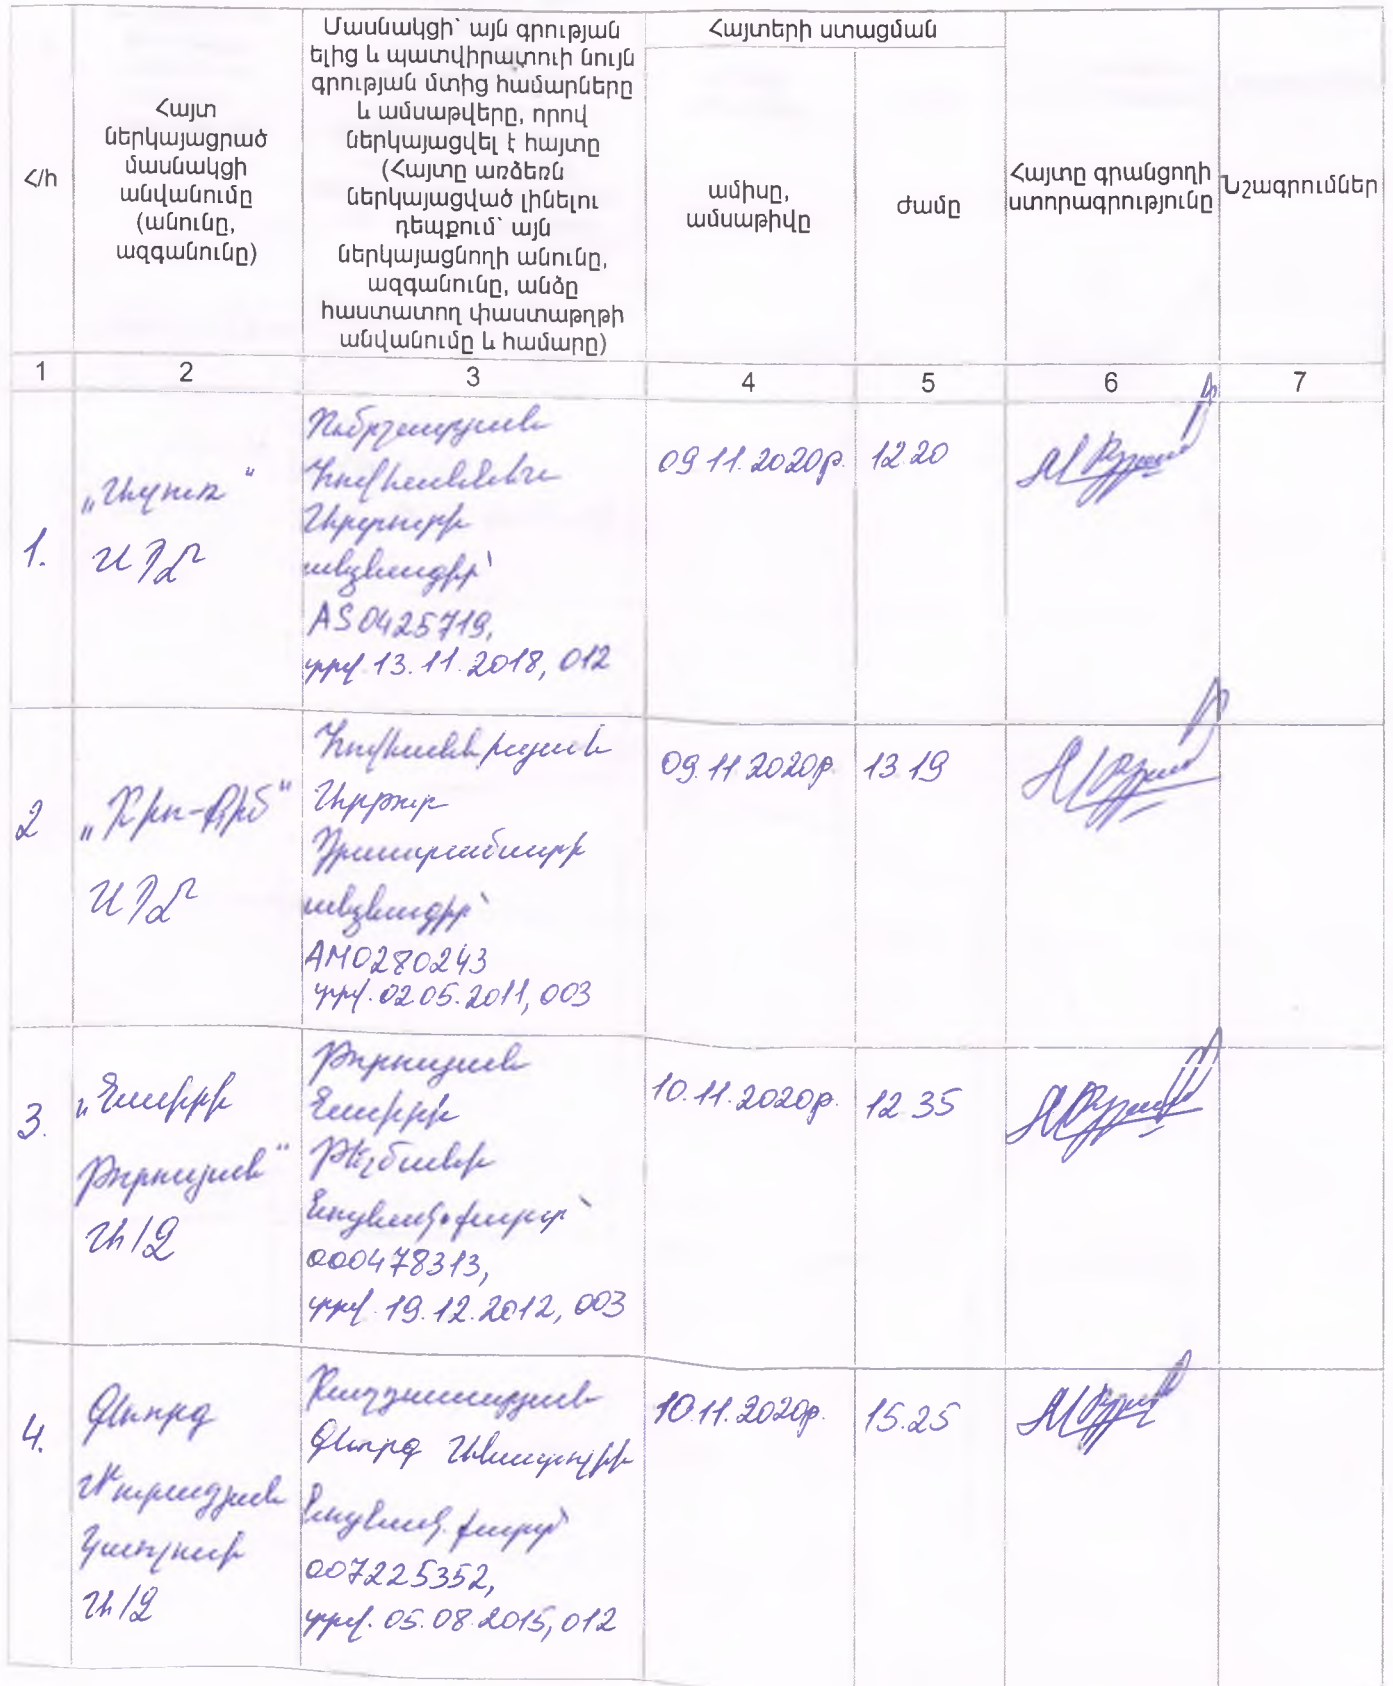 Հ/հ
Հայտ
ներկայացրած
մասնակցի
անվանումը
(անունը,
ազգանունը)
Մասնակցի` այն գրության
ելից և պատվիրատուի նույն
գրության մտից համարները
և ամսաթվերը, որով
ներկայացվել է հայտը
(Հայտը առձեռն
ներկայացված լինելու
դեպքում` այն
ներկայացնողի անունը,
ազգանունը, անձը
հաստատող փաստաթղթի
անվանումը և համարը)
Հայտերի ստացման
ամիսը,
ամսաթիվը
ժամը
Հայտը գրանցողի
ստորագրությունը
Նշագրումներ
1 2 3 4 5 6 7
1.
ՍՊԸ
Հովհաննես
Արթուրի
անձնագիր`
AS 0425719,
տրվ. 13.11.2018, 012
09.11.2020թ.
12.20
2
ՍՊԸ
Հովհաննիսյան
Արթուր
անձնագիր`
AM0280243
տրվ. 02.05.2011, 003
09.11.2020թ.
13.19
3.
„Շամիրի
Թորոսյան“
Ա/Ձ
Թորոսյան
Շամիրի
նույնակ. քարտ`
000478313,
տրվ. 19.12.2012, 003
10.11.2020թ.
12.35
4.
Գևորգ
Ա/Ձ
Գևորգ Անատոլիի
նույնակ. քարտ`
007225352,
տրվ. 05.08.2015, 012
10.11.2020թ.
15.25